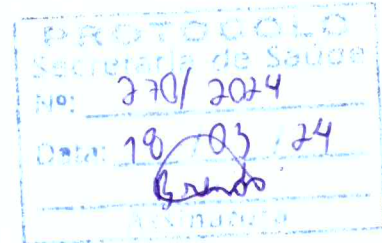 PROTOCOLO
Secretaria de Saúde
Nº: 270/2024
Data: 18/03/24
Assinatura